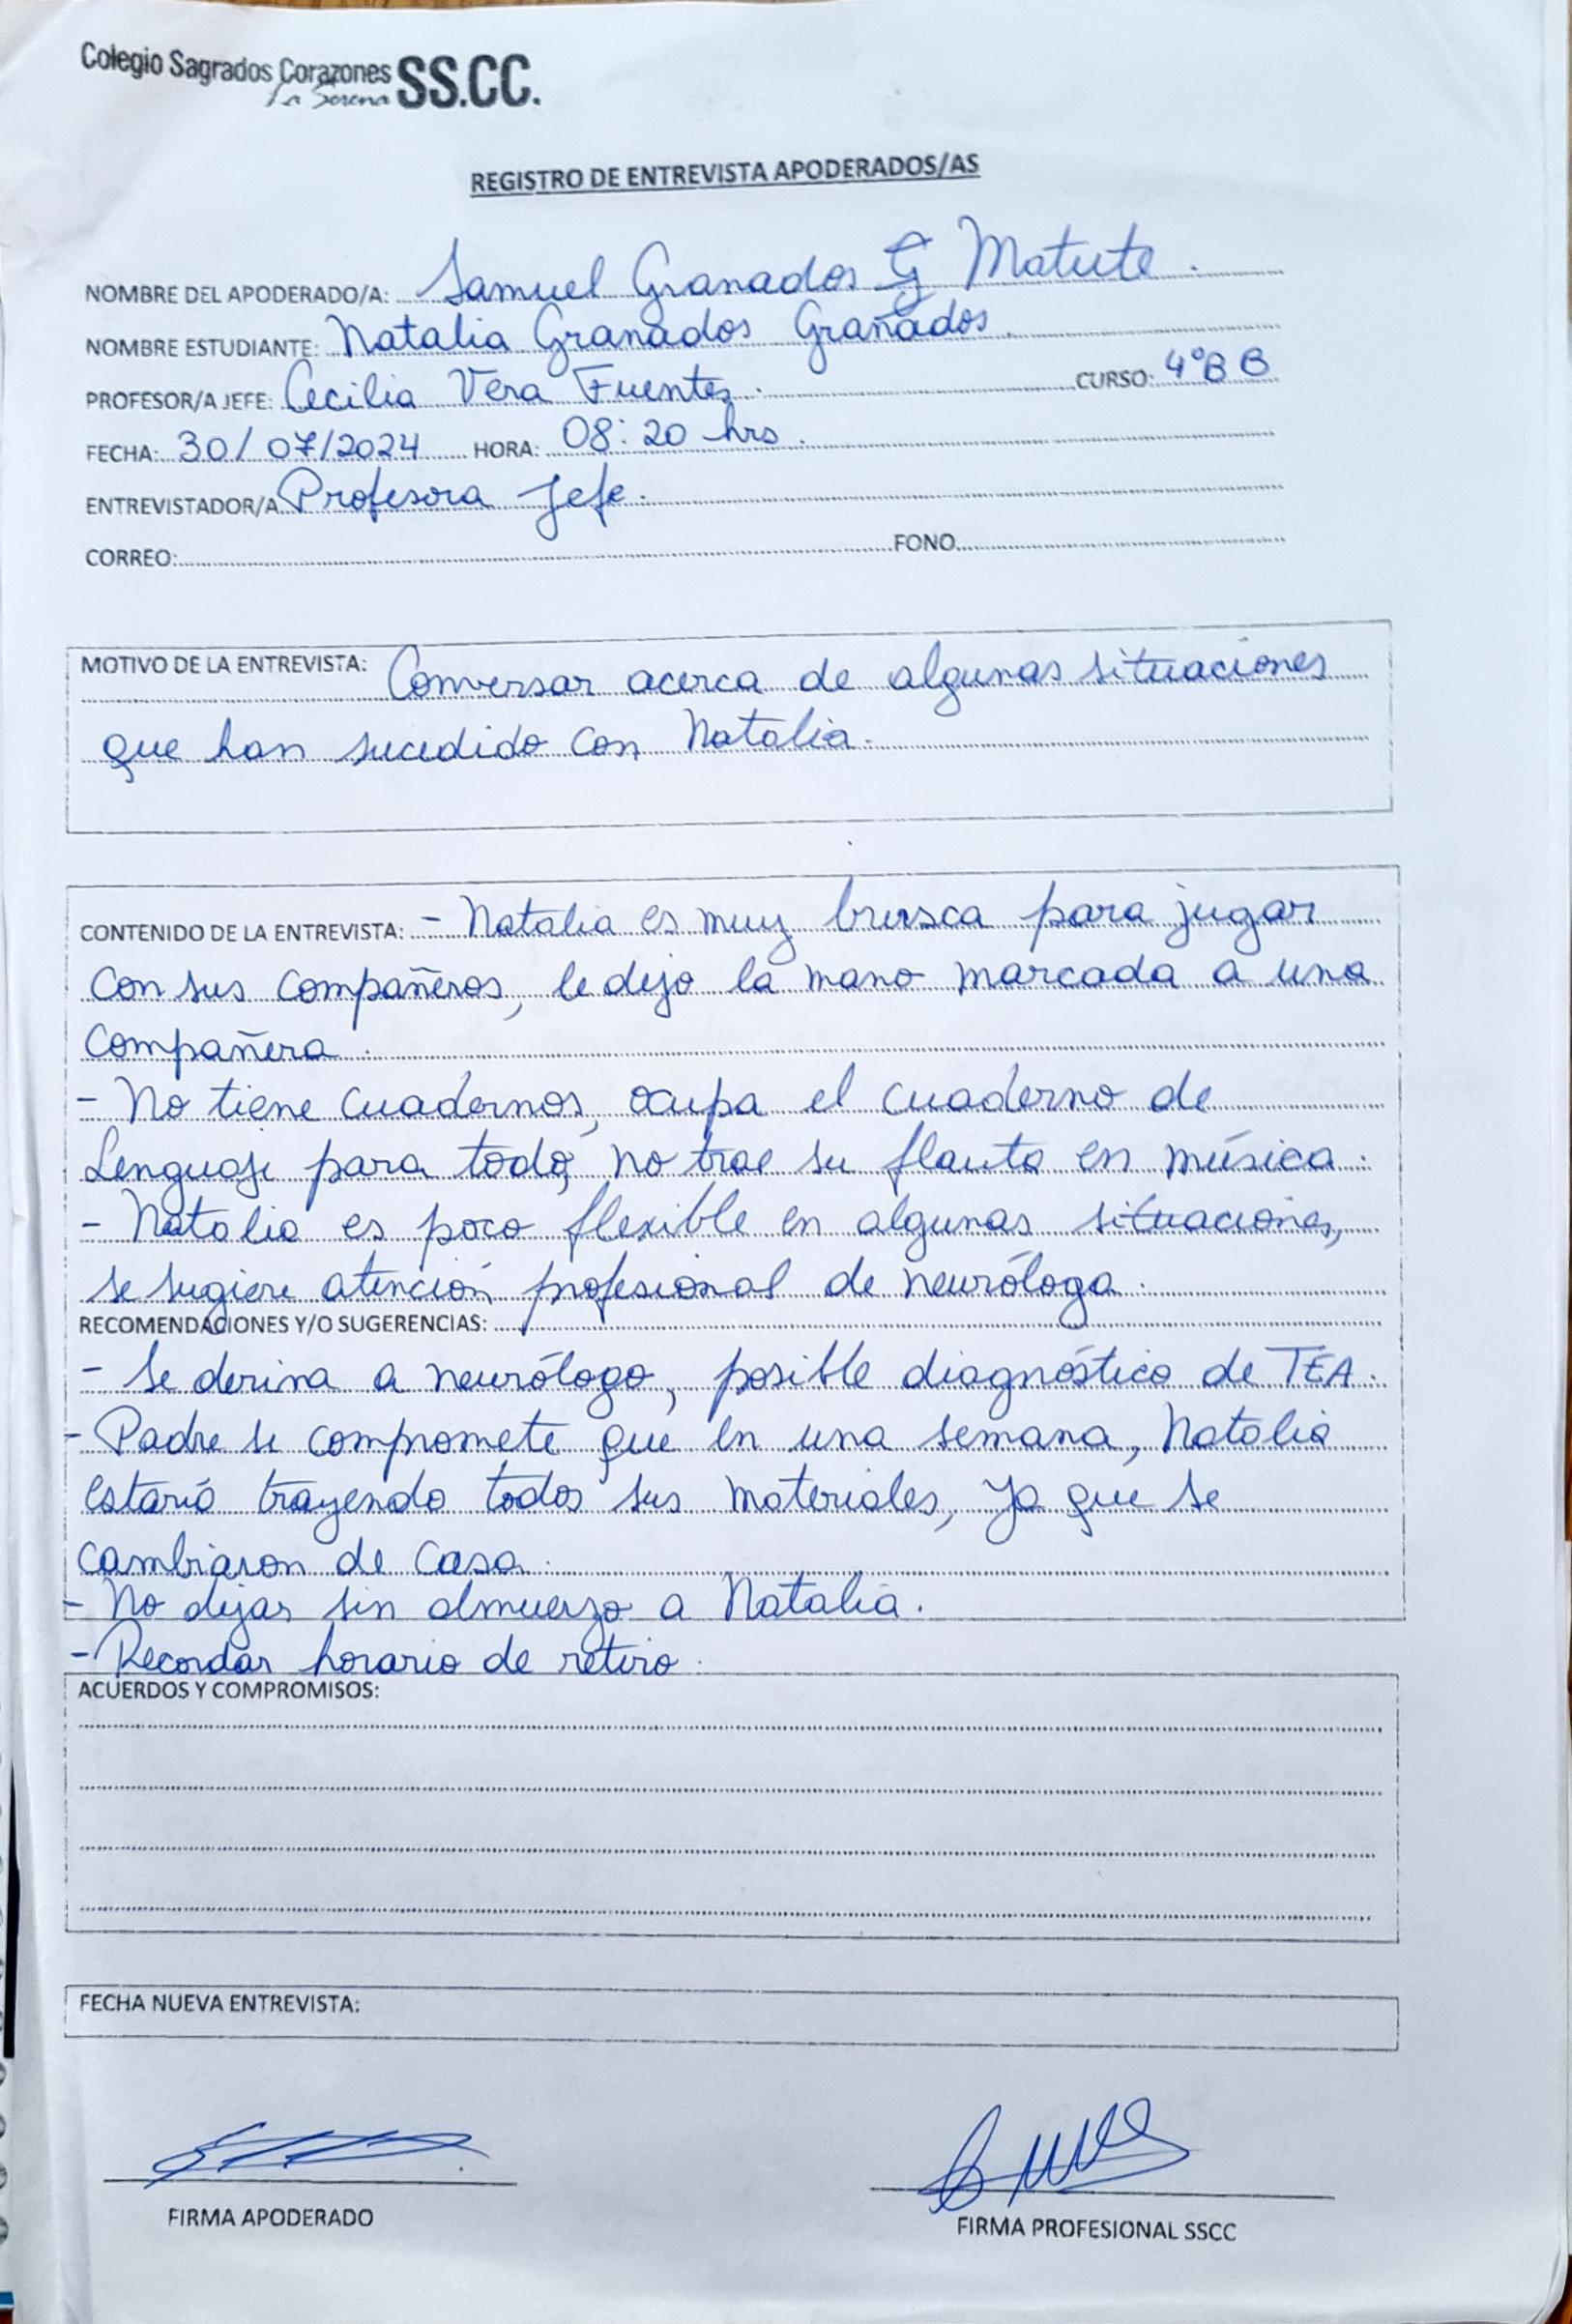 Colegio Sagrados Corazones SS.CC.
La Serena
REGISTRO DE ENTREVISTA APODERADOS/AS
NOMBRE DEL APODERADO/A: Samuel Granados G Matute.
NOMBRE ESTUDIANTE: Natalia Granados Granados.
PROFESOR/A JEFE: Cecilia Vera Fuentes. CURSO: 4°B B
FECHA: 30/07/2024 HORA: 08:20 hrs.
ENTREVISTADOR/A Profesora Jefe.
CORREO: FONO
MOTIVO DE LA ENTREVISTA: Conversar acerca de algunas situaciones
que han sucedido con Natalia.
CONTENIDO DE LA ENTREVISTA: - Natalia es muy brusca para jugar
con sus compañeros, le dejo la mano marcada a una
compañera.
- No tiene cuadernos, ocupa el cuaderno de
Lenguaje para todo, no trae su flauta en música.
- Natalia es poco flexible en algunas situaciones,
se sugiere atención profesional de neuróloga.
RECOMENDACIONES Y/O SUGERENCIAS:
- Se deriva a neurólogo, posible diagnóstico de TEA.
- Padre se compromete que en una semana, Natalia
estará trayendo todos sus materiales, ya que se
cambiaron de casa.
- No dejar sin almuerzo a Natalia.
- Recordar horario de retiro.
ACUERDOS Y COMPROMISOS:
FECHA NUEVA ENTREVISTA:
FIRMA APODERADO
FIRMA PROFESIONAL SSCC